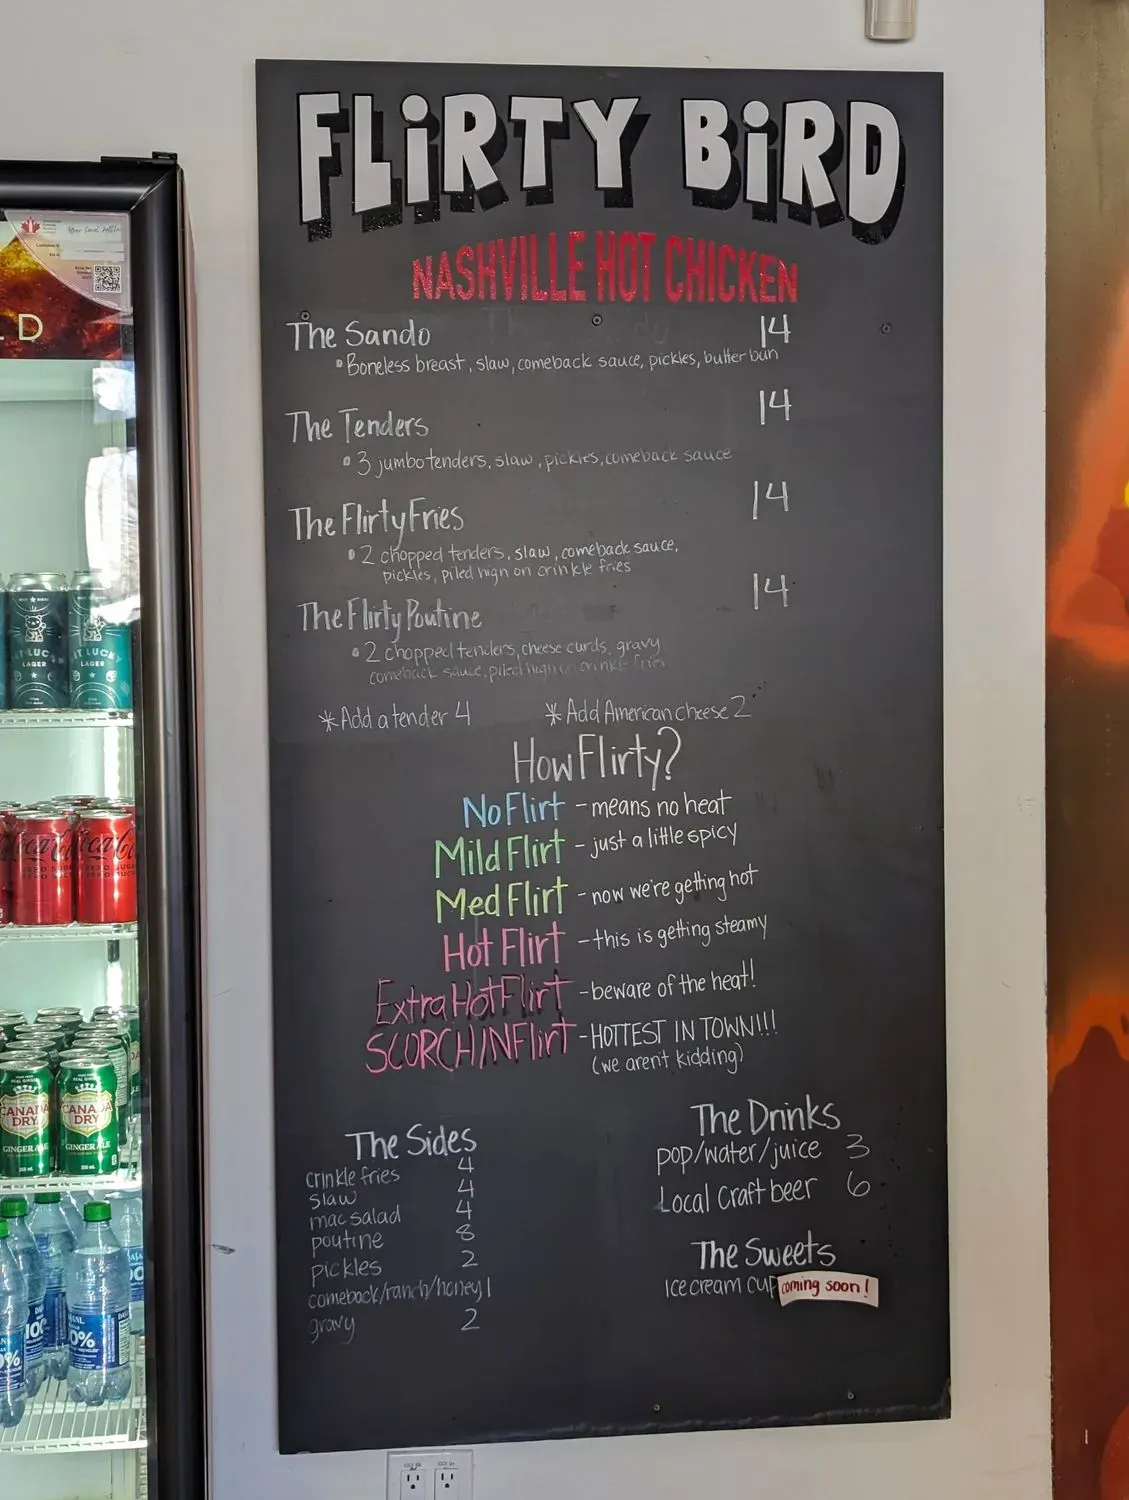 FLiRTY BiRD
NASHVILLE HOT CHICKEN
The Sando 14
Boneless breast, slaw, comeback sauce, pickles, butter bun
The Tenders 14
3 jumbo tenders, slaw, pickles, comeback sauce
The Flirty Fries 14
2 chopped tenders, slaw, comeback sauce,
pickles, piled high on crinkle fries
The Flirty Poutine 14
2 chopped tenders, cheese curds, gravy
comeback sauce, piled high on crinkle fries
*Add a tender 4 *Add American cheese 2
How Flirty?
No Flirt - means no heat
Mild Flirt - just a little spicy
Med Flirt - now we're getting hot
Hot Flirt - this is getting steamy
Extra Hot Flirt - beware of the heat!
SCORCHIN Flirt - HOTTEST IN TOWN!!!
(we arent kidding)
The Sides
crinkle fries 4
slaw 4
mac salad 4
poutine 8
pickles 2
comeback/ranch/honey 1
gravy 2
The Drinks
pop/water/juice 3
Local Craft beer 6
The Sweets
ice cream cup coming soon!
LD
LAGER
LAGER
Coca-Cola
ZERO SUGAR
CANADA DRY
GINGER ALE
CANADA DRY
GINGER ALE
100%